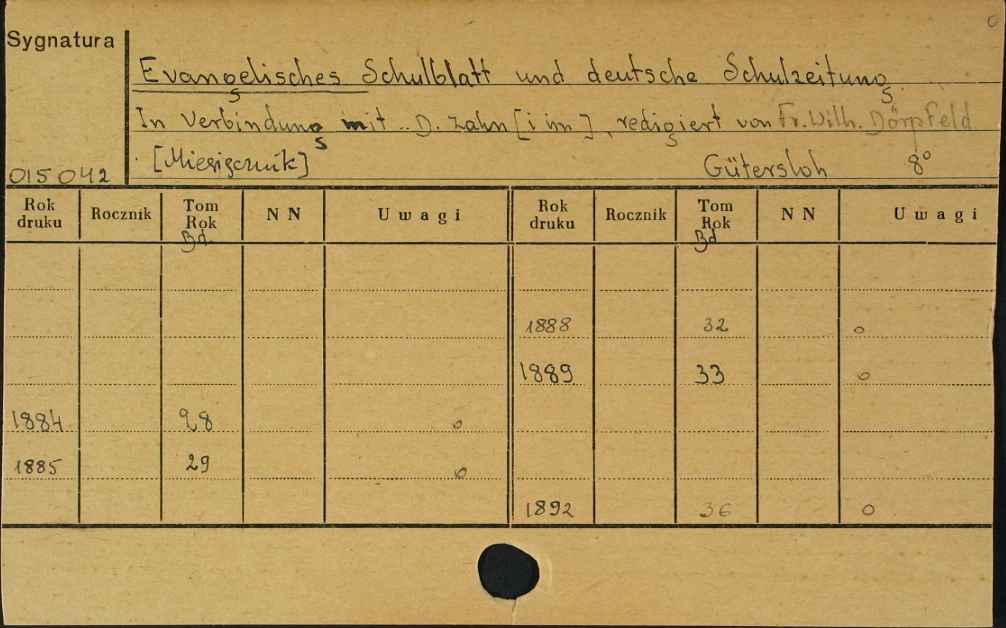 Sygnatura
Evangelisches Schulblatt und deutsche Schulzeitung.
In Verbindung mit .. D. Zahn [i in.], redigiert von Fr. Wilh. Dörpfeld
. [Miesięcznik] Gütersloh 8°
015042
Rok druku Rocznik Tom Rok Bd. N N Uwagi Rok druku Rocznik Tom Rok Bd N N Uwagi
1888 32 o
1889 33 o
1884 28 o
1885 29 o
1892 36 o